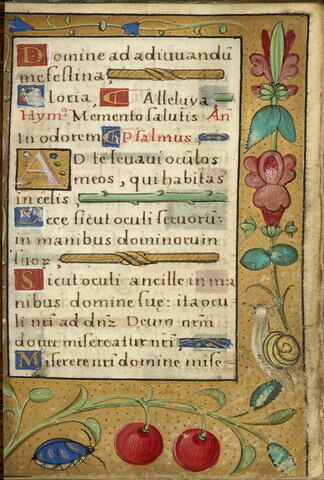 Domine ad adiuuandū
me festina,
Gloria, Alleluya
Hym⁹ Memento salutis An
In odorem Psalmus
AD te leuaui ocułos
meos, qui habitas
in celis,
Ecce sicut oculi seruoru:
in manibus dominorum
suor
Sicut oculi ancille in ma
nibus domine suę: ita ocu
li nrī ad dnz Deum nrm
donec misereatur nrī
Miserere nrī domine mise